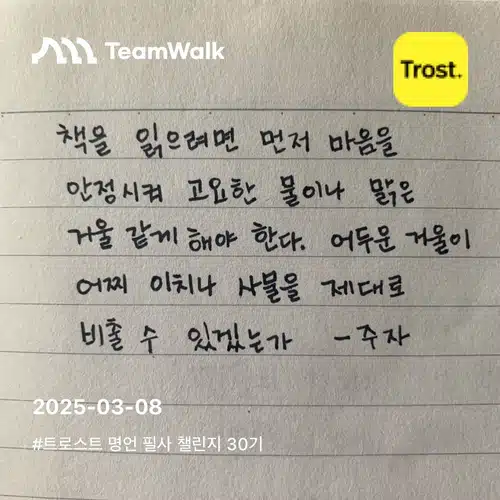 TeamWalk
Trost.
책을 읽으려면 먼저 마음을
안정시켜 고요한 물이나 맑은
거울 같게 해야 한다. 어두운 거울이
어찌 이치나 사물을 제대로
비출 수 있겠는가 -주자
2025-03-08
#트로스트 명언 필사 챌린지 30기